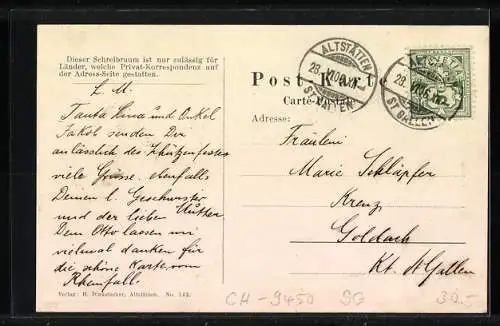 Dieser Schreibraum ist nur zulässig für
Länder, welche Privat-Korrespondenz auf
der Adress-Seite gestatten.
Post-Karte
Carte-Postale
Adresse:
ALTSTÄTTEN
ST. GALLEN
ALTSTÄTTEN
ST. GALLEN
L. M.
Tanta Lina und Onkel
Jakob senden Dir
anlässlich des Schützenfestes
viele Grüsse. ebenfalls
Deinen l. Geschwister
und der lieben Mutter
Dem Otto lassen wir
vielmal danken für
die schöne Karte vom
Rheinfall.
Fräulein
Marie Schläpfer
Kreuz
Goldach
Kt. St Gallen
Altstätten. No. 143.
CH-9450 SG 30.-